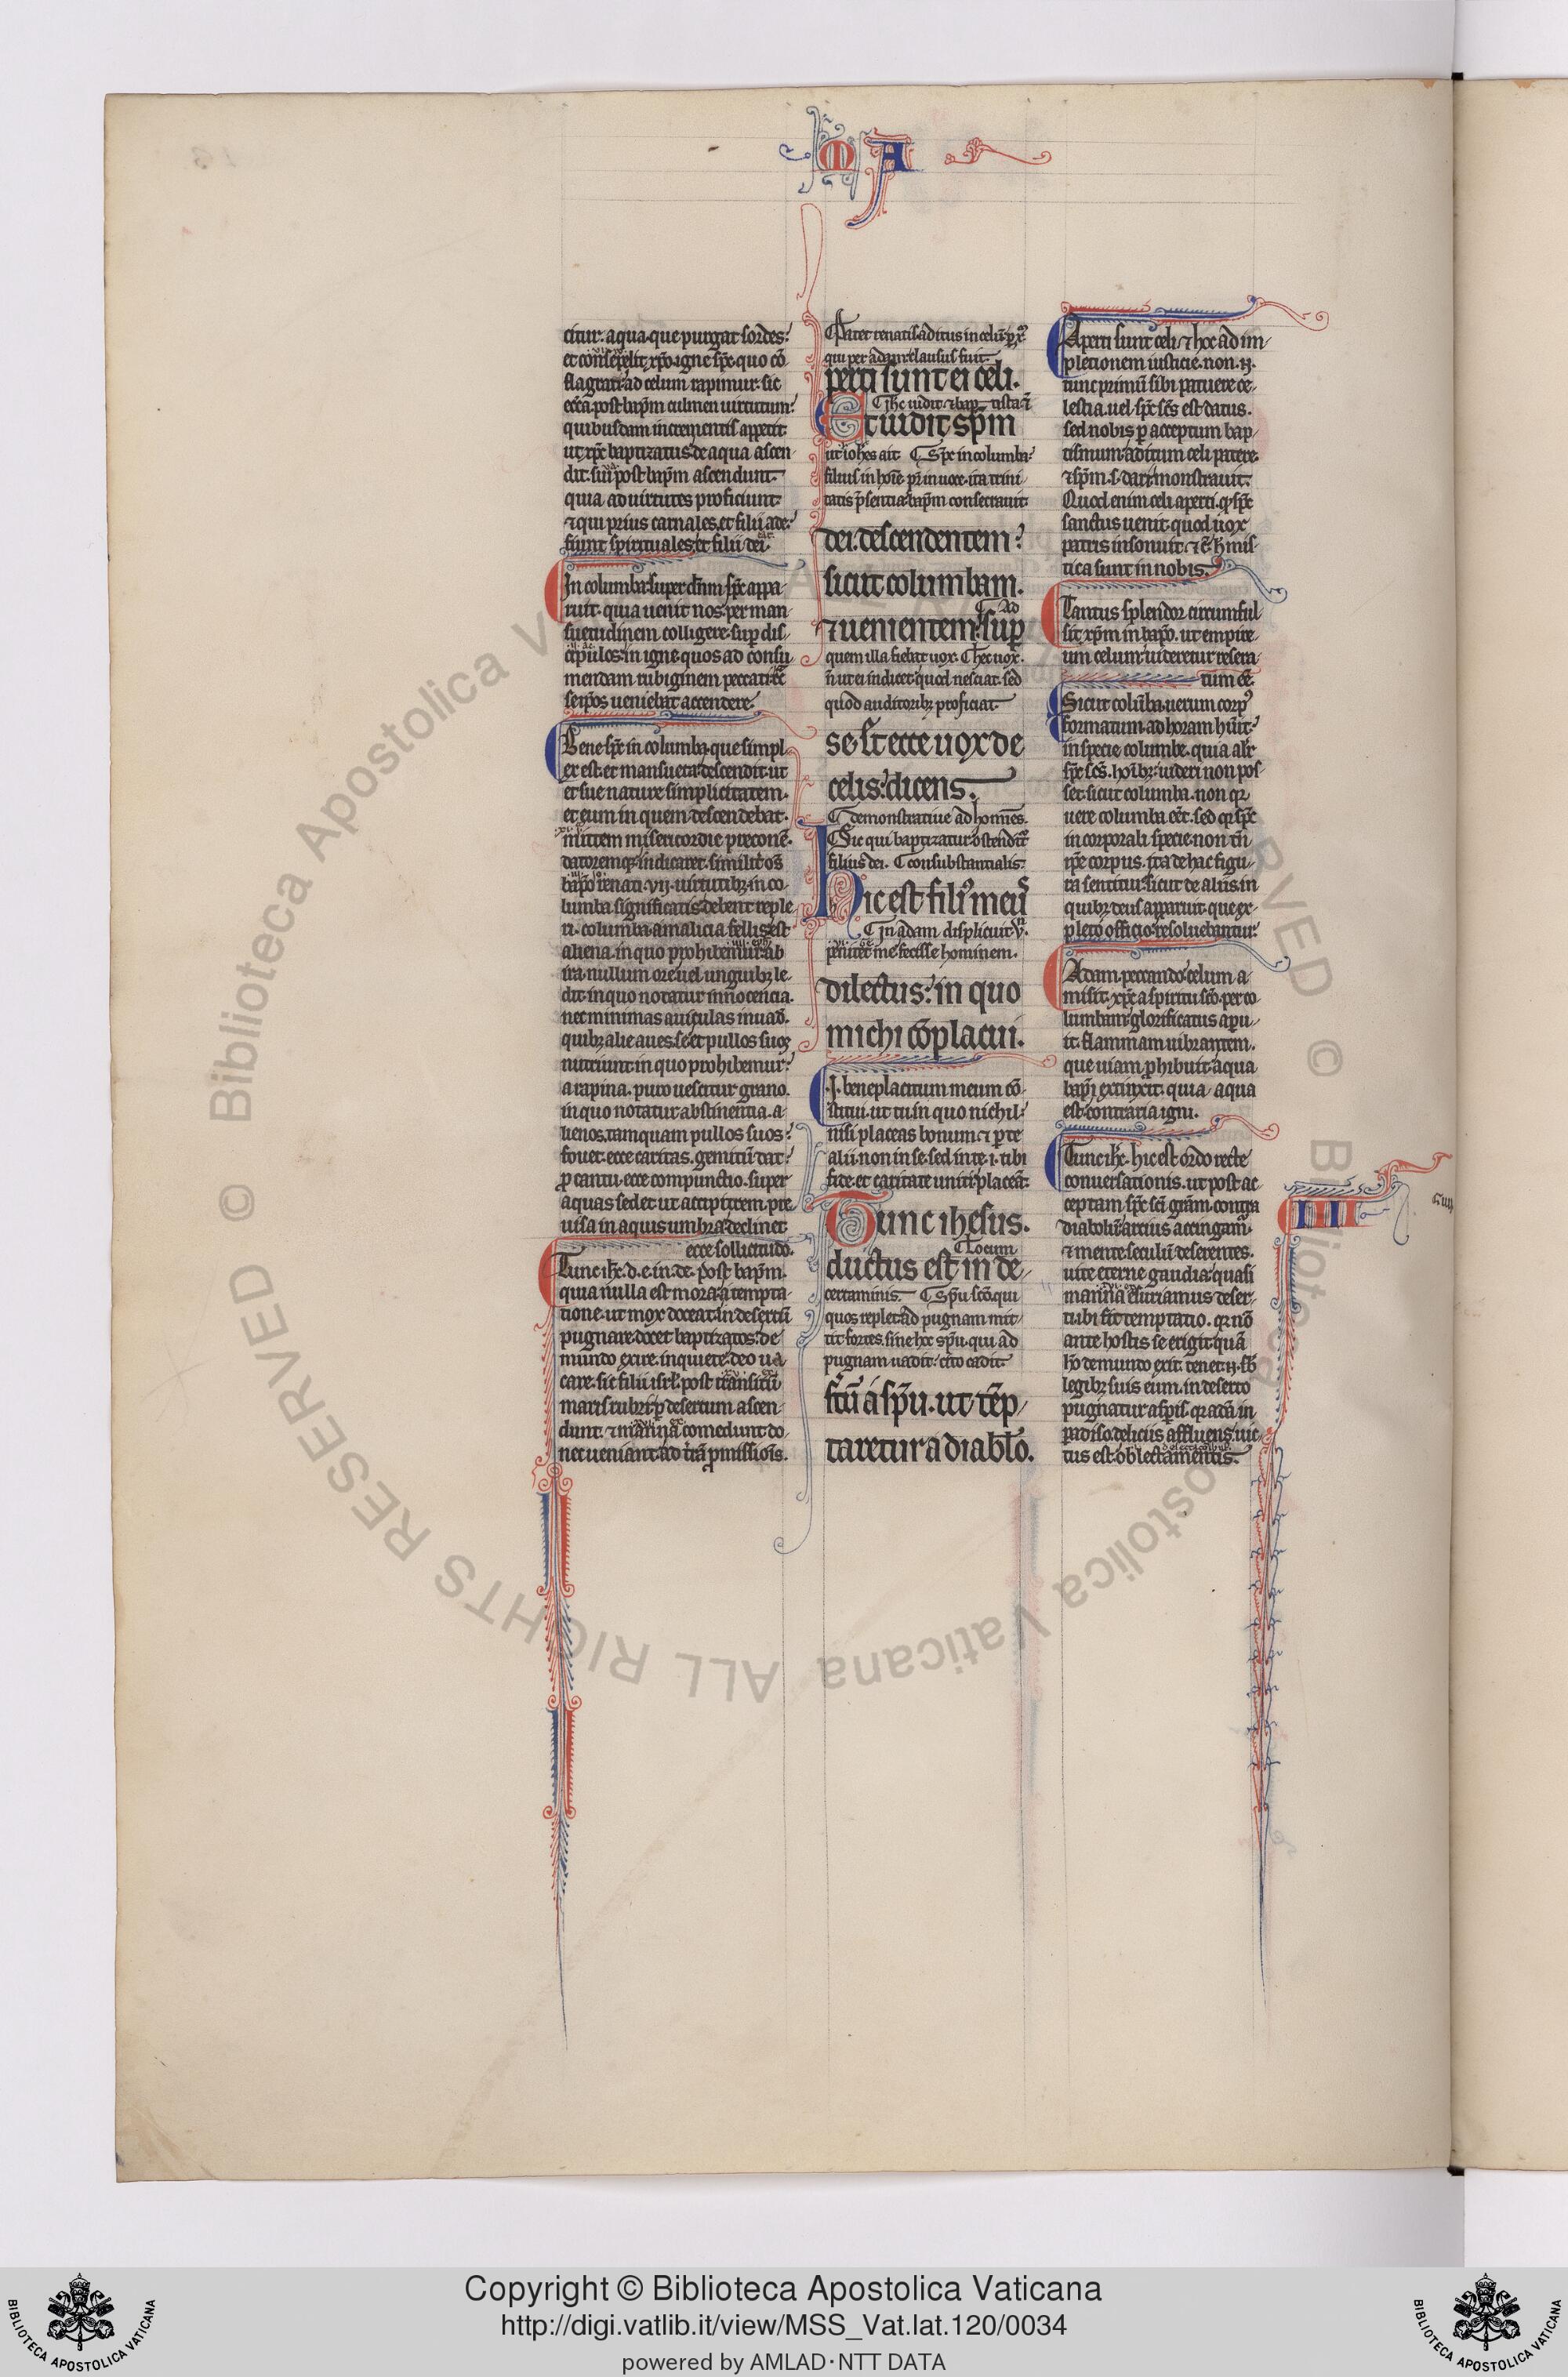 M A
citur. aqua. que purgat sordes.
et consepelit xp̄o. igne sp̄c. quo cō
flagrati ad celum rapimur. sic
ecc̄a. post bap̄m culmen uirtutum
quibusdam incrementis appetit
ut xp̄c baptizatus de aqua ascen
dit. sui post bap̄m ascendunt.
quia ad uirtutes proficiunt
⁊ qui prius carnales. et filii ade.
fiunt spirituales. et filii dei.
In columba super dn̄m sp̄c appa
ruit. quia uenit nos per man
suetudinem colligere. sup̄ dis
cipulos. in igne. quos ad consu
mendam rubiginem peccati
se ip̄os ueniebat accendere.
Bene sp̄c in columba. que simpl
ex est. et mansueta descendit. ut
et sue nature simplicitatem.
et eum in quem descendebat.
mittem misericordie preconē.
datoremq; indicaret. similit̄ oꝫ
bap̄o renati. vij. uirtutibꝫ. in co
lumba significatis debent reple
ri. columba. a malicia fellis est
aliena. in quo prohibemur ab
ira. nullum ore uel unguibꝫ le
dit. in quo notatur innocencia.
nec minimas auiculas inuad.
quibꝫ alie aues. se et pullos suoꝫ
nutriunt. in quo prohibemur
a rapina. puro uescitur grano.
in quo notatur abstinentia. a
lienos. tamquam pullos suos
fouet. ecce caritas. gemitū dat
p̄ cantu. ecce compunctio. super
aquas sedet. ut accipitrem pre
uisa in aquis umbra declinet
ecce sollicitudo.
Tunc ih̄c. d. e. in. de. post bap̄m.
quia nulla est mora a tempta
tione. ut mox doceat in desertū
pugnare. docet baptizatos. de
mundo exire. in quiete. deo ua
care. sic filii isrl̄. post transitū
maris rubri p̄ desertum ascen
dunt. ⁊ manna comedunt do
nec ueniant ad t̄rā p̄missiois.
Patet renatis aditus in celū. p̄ xp̄
qui per adam clausus fuit.
perti sunt ei celi.
Ih̄c uidit. ⁊ bap tista
Et uidit sp̄m
ut ioh̄es ait Sp̄c in columba
filius in hoīe. pr̄ in uoce. ita trini
tatis p̄sentia. bap̄m consecrauit.
dei. descendentem
sicut columbam.
ad
⁊ uenientem sup̄
quem illa fiebat uox. Hec uox.
n̄ ut ei indicet quod nesciat. sed
quod auditoribꝫ proficiat
se. Et ecce uox de
celis dicens.
demonstratiue ad homīes.
Sic qui baptizatur ostendit̄
filius dei. consubstantialis.
Hic est fili⁹ meꝰ
In adam displicuit
penitet me fecisse hominem.
dilectus. in quo
michi cōplacui.
.I. beneplacitum meum cō
stitui. ut tu in quo nichil
nisi placeas bonum. ⁊ p̄ te
alii. non in se. sed in te. i. tibi
fide. et caritate uniti placeāt.
Tunc ihesus.
Locum
ductus est in de
certaminis. Sp̄u sc̄o. qui
quos replet. ad pugnam mit
tit fortes. sine hoc sp̄u. qui ad
pugnam uadit. cito cadit
sertū a sp̄u. ut tēp
taretur a diabl̄o.
Aperti sunt celi. ⁊ hoc ad im
pletionem iusticie. non
tunc primū sibi patuere ce
lestia. uel sp̄c sc̄s est datus.
sed nobis p̄ acceptum bap
tismum. aditum celi patere.
⁊ sp̄m. s. dari monstrauit.
Quod enim celi aperti. q̄ sp̄c
sanctus uenit. quod uox
patris insonuit. mis
tica sunt in nobis.
Tantus splendor circumful
sit xp̄m in bap̄o. ut empire
um celum uideretur resera
tum eē.
Sicut colūba. uerum corp⁹
formatum. ad horam hūit
in specie columbe. quia alr̄
sp̄c sc̄s. hoībꝫ uideri non pos
set. sicut columba. non qr
uere columba eēt. sed q̄ sp̄c
in corporali specie. non tn̄
ip̄e corpus. ita de hac figu
ra sentitur. sicut de aliis in
quibꝫ deus apparuit. que ex
pleto officio. resoluebantur.
Adam peccando celum a
misit. xp̄c a spiritu sc̄o per co
lumbam glorificatus aperu
it. flammam uibrantem.
que uiam p̄hibuit. aqua
bap̄i extinxit. quia aqua
est contraria igni.
Tunc ih̄c. hic est ordo recte
conuersationis. ut post ac
ceptam sp̄c sc̄i grām. contra
diabolū. arcius accingam̄.
⁊ mente seculū deserentes.
uite eterne gaudia. quasi
manna esuriamus. deser
ti. ibi fit temptatio. qr nō
ante hostis se erigit. quā
hō de mundo exit. tenet
legibꝫ suis eum. in deserto
pugnatur asp̄is. qr adā in
padiso. deliciis affluens. uic
tus est. oblectamentis.
IIII